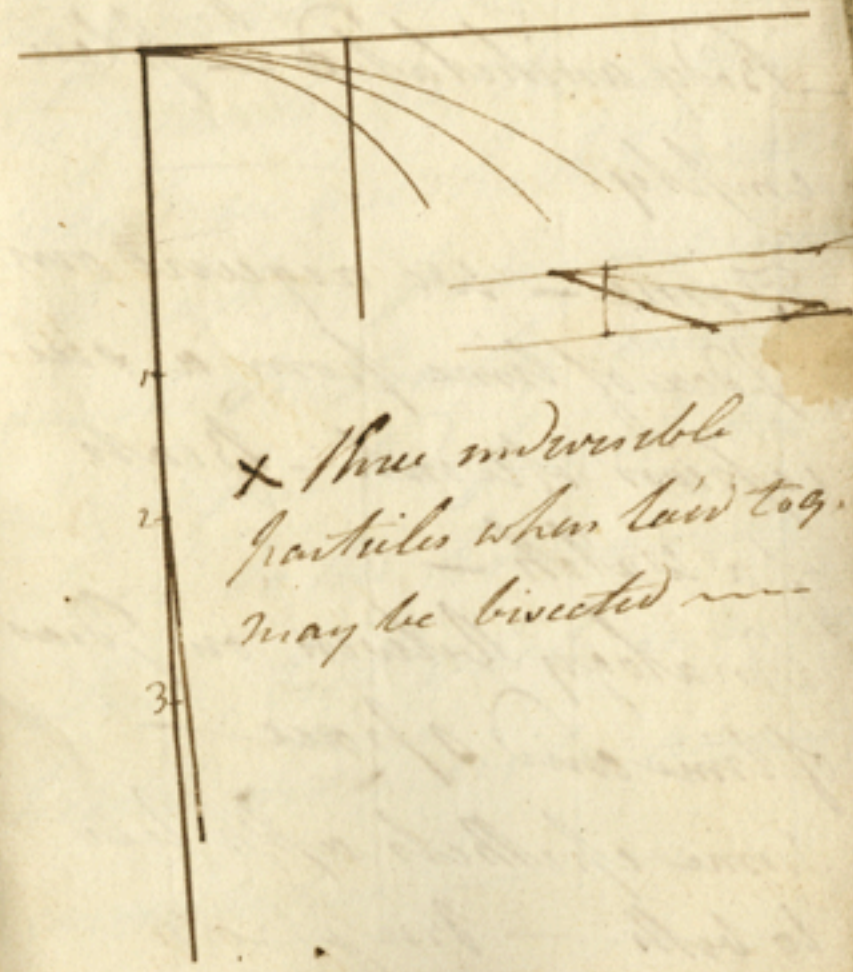 1
2
3
X Three indivisible
particles when laid tog.
may be bisected